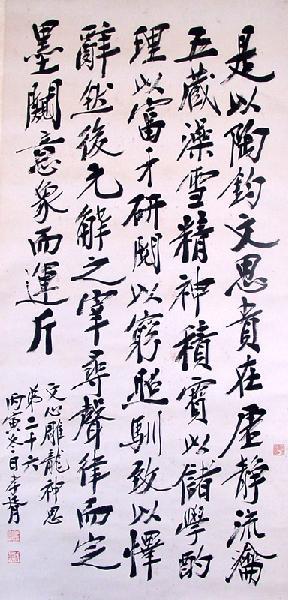 是以陶鈞文思貴在虛靜流瀹
五藏澡雪精神積寶以儲學酌
理以富才研閱以窮照馴致以懌
辭然後元解之宰尋聲律而定
墨闚意象而運斤
文心雕龍神思
弟二十六
丙寅冬日李